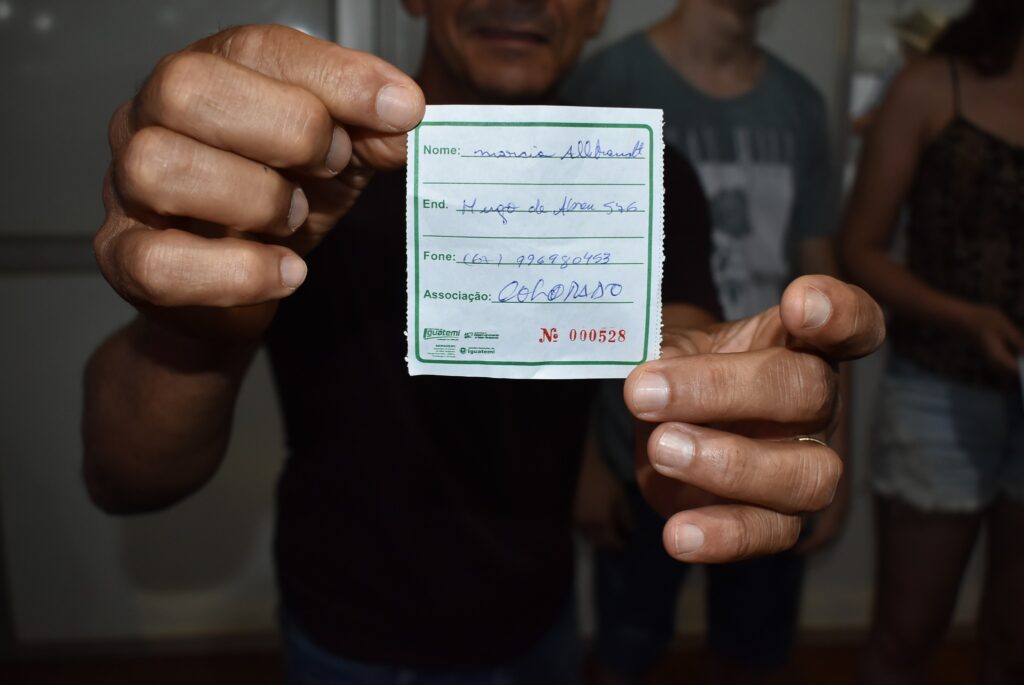 Nome: marcia Allbrandt
End. Hugo de Abreu 576
Fone: (67) 996980453
Associação: COLORADO
Iguatemi
Iguatemi
Nº 000528